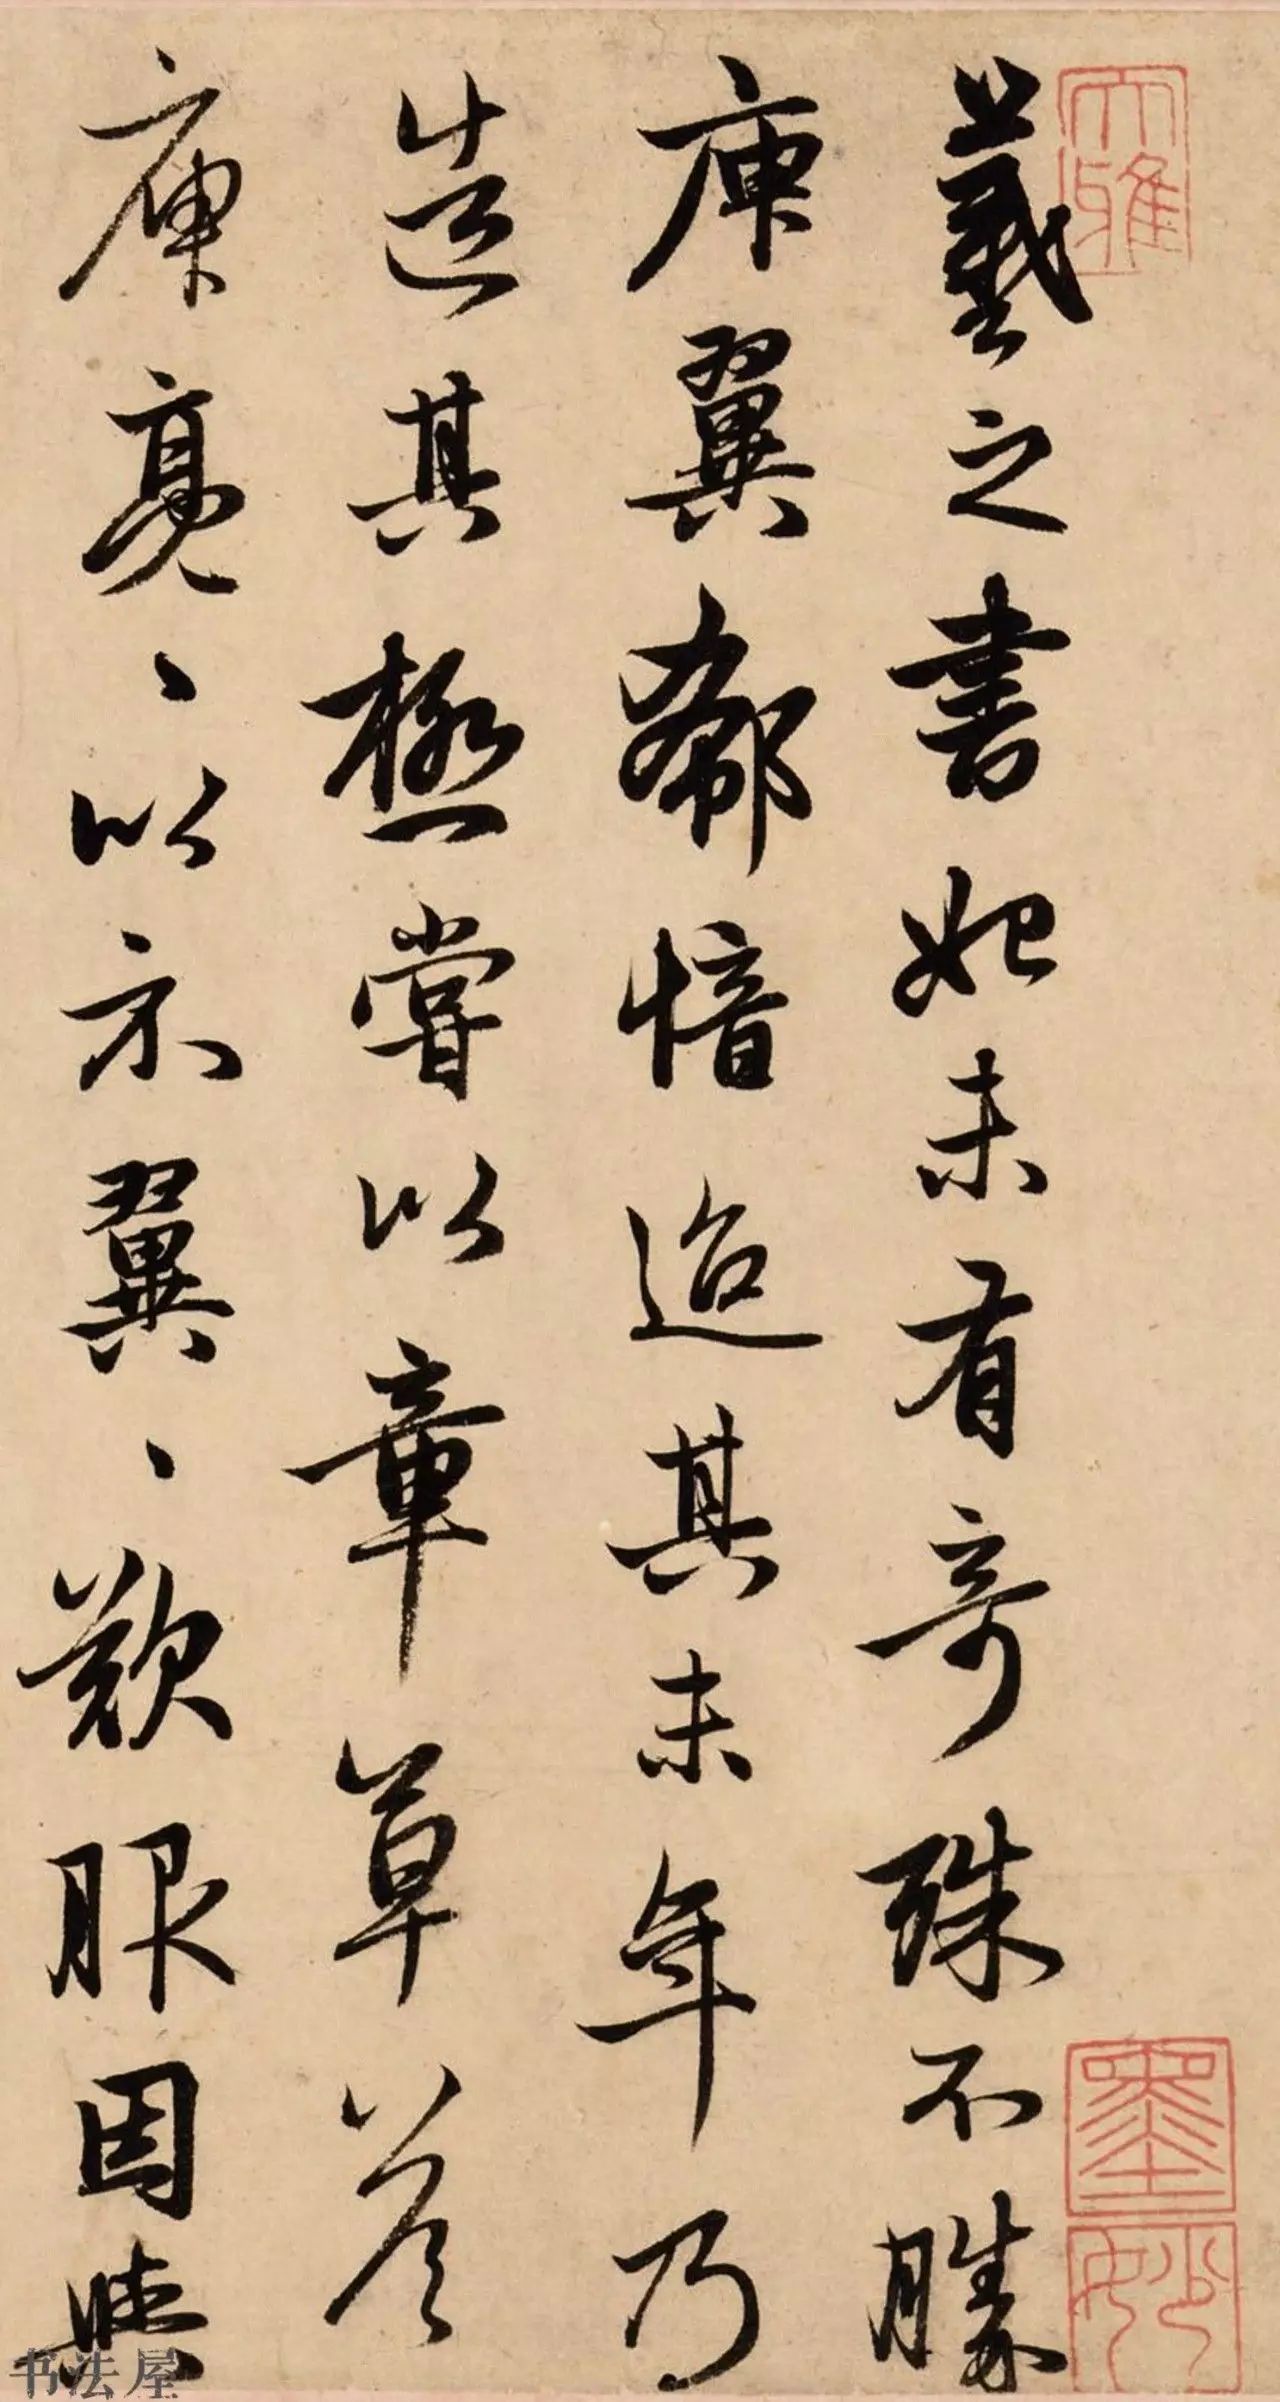 羲之書始未有奇殊不勝
庾翼郗愔迨其末年乃
造其極嘗以章草答
庾亮、以示翼、歎服因與
大雅
墨妙
书法屋